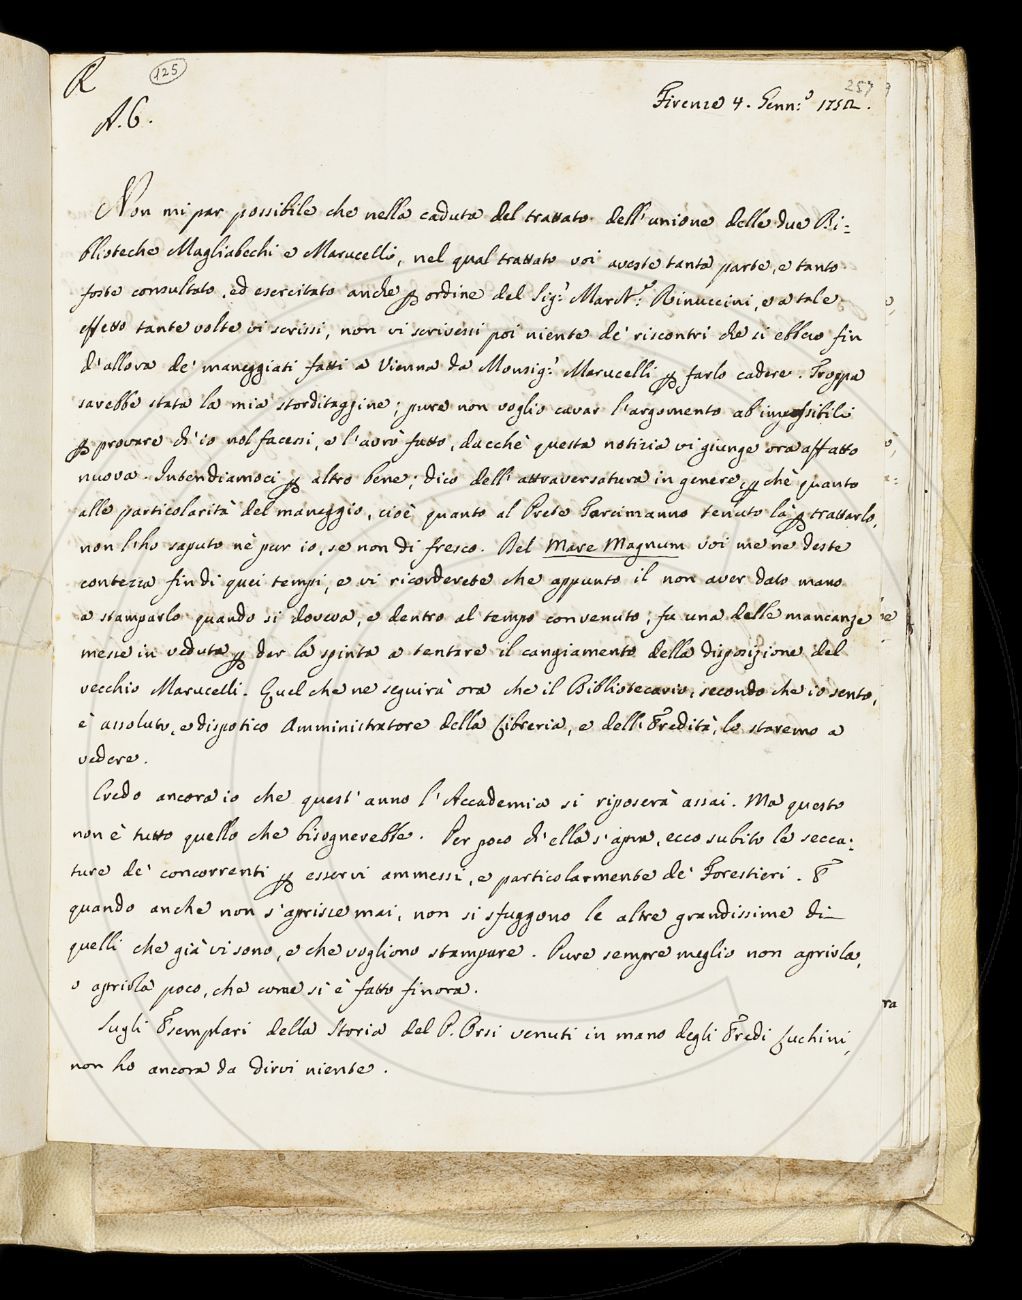 R
125
257
A. C.
Firenze 4. Genn:º 1752.
Non mi par possibile che nella caduta del trattato dell'unione delle due Bi-
blioteche Magliabechi e Marucelli, nel qual trattato voi aveste tanta parte, e tanto
foste consultato, ed esercitato anche p ordine del Sig.r March.e Rinuccini, e a tale
effetto tante volte vi scrissi, non vi scrivessi poi niente de' riscontri che si ebbero fin
d'allora de' maneggiati fatti a Vienna da Monsig.r Marucelli p farlo cadere. Troppa
sarebbe stata la mia storditaggine; pure non voglio cavar l'argomento ab impossibili
p provare ch'io nol facessi, e l'avrò fatto, dacchè questa notizia vi giunge ora affatto
nuova. Intendiamoci p altro bene; dico dell'attraversatura in genere, p chè quanto
alle particolarità del maneggio, cioè quanto al Prete Garcimanno tenuto là p trattarlo,
non l'ho saputo nè pur io, se non di fresco. Del Mare Magnum voi me ne deste
contezza fin di quei tempi, e vi ricorderete che appunto il non aver dato mano
a stamparlo quando si doveva, e dentro al tempo convenuto, fu una delle mancanze
messe in veduta p dar la spinta a tentare il cangiamento della disposizione del
vecchio Marucelli. Quel che ne seguirà ora che il Bibliotecario, secondo che io sento,
è assoluto, e dispotico Amministratore della Libreria, e dell'Eredità, lo staremo a
vedere.
Credo ancora io che quest'anno l'Accademia si riposerà assai. Ma questo
non è tutto quello che bisognerebbe. Per poco ch'ella s'apra, ecco subito le secca-
ture de' concorrenti p esservi ammessi, e particolarmente de' Forestieri. E
quando anche non s'aprisse mai, non si sfuggono le altre grandissime di
quelli che già vi sono, e che vogliono stampare. Pure sempre meglio non aprirla,
o aprirla poco, che come si è fatto finora.
Sugli Esemplari della Storia del P. Orsi venuti in mano degli Eredi Luchini,
non ho ancora da dirvi niente.
ra